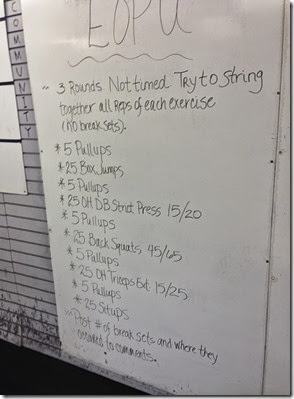 COMMUNITY
EOPU
~ 3 Rounds Not timed Try to string
together all Reps of each exercise
(no break sets).
* 5 Pullups
* 25 Box Jumps
* 5 Pullups
* 25 OH DB Strict Press 15/20
* 5 Pullups
* 25 Back Squats 45/65
* 5 Pullups
* 25 OH Triceps Ext 15/25
* 5 Pullups
* 25 Situps
~ Post # of break sets and where they
occurred to comments.